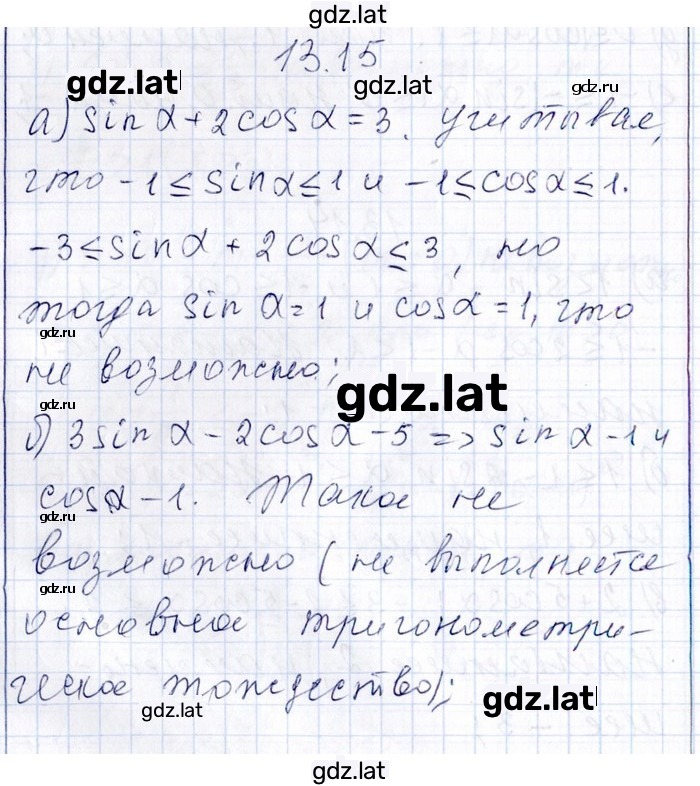 gdz.lat
13.15
gdz.lat gdz.lat gdz.ru
а) sin α + 2 cos α = 3. Учитывая,
что -1 ≤ sin α ≤ 1 и -1 ≤ cos α ≤ 1.
-3 ≤ sin α + 2 cos α ≤ 3, но
тогда sin α = 1 и cos α = 1, что
gdz.ru
не возможно;
gdz.lat
gdz.ru
б) 3 sin α - 2 cos α - 5 => sin α - 1 и
cos α - 1. Такое не
gdz.ru
возможно (не выполняется
gdz.ru
основное тригонометри-
ческое тождество);
gdz.lat gdz.lat
gdz.lat